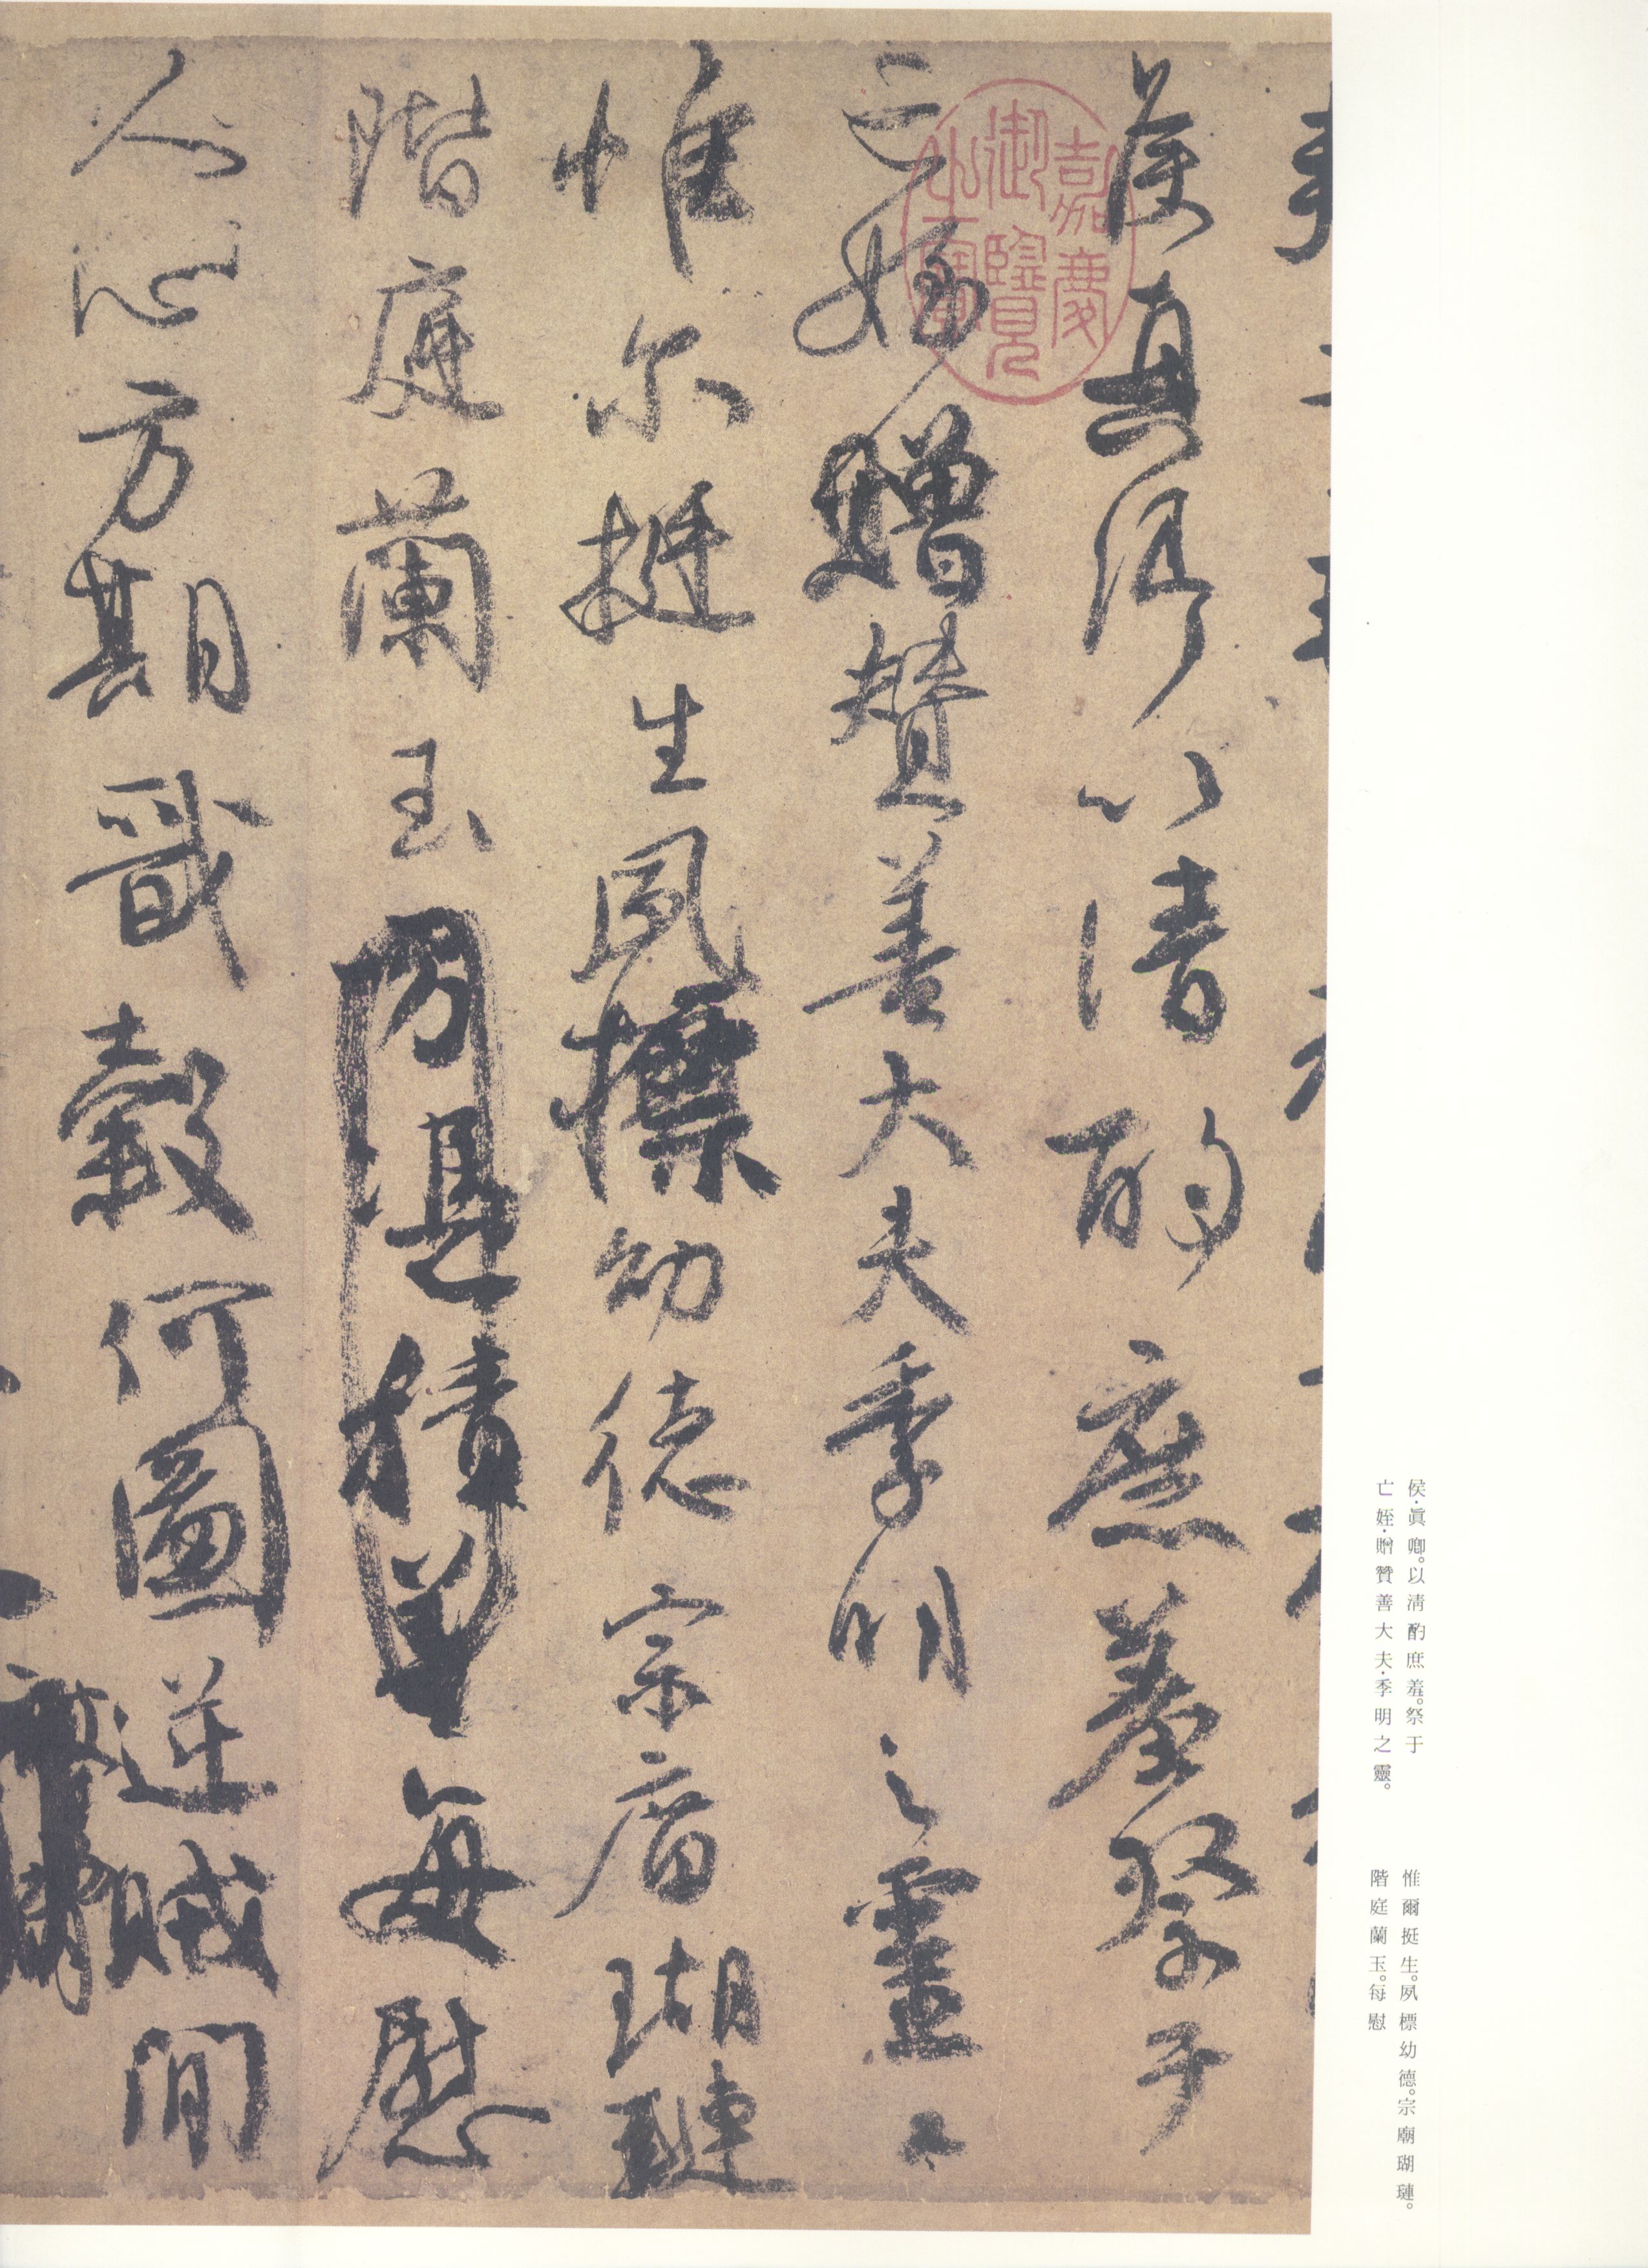 侯真卿以清酌庶羞祭于
亡姪贈贊善大夫季明之靈
惟尔挺生夙標幼德宗廟瑚璉
階庭蘭玉每慰
人心方期戩穀何圖逆賊閒
嘉慶
御覽
之寶
侯·眞卿。以清酌庶羞。祭于
亡姪·贈贊善大夫·季明之靈。
惟爾挺生。夙標幼德。宗廟瑚璉。
階庭蘭玉。每慰